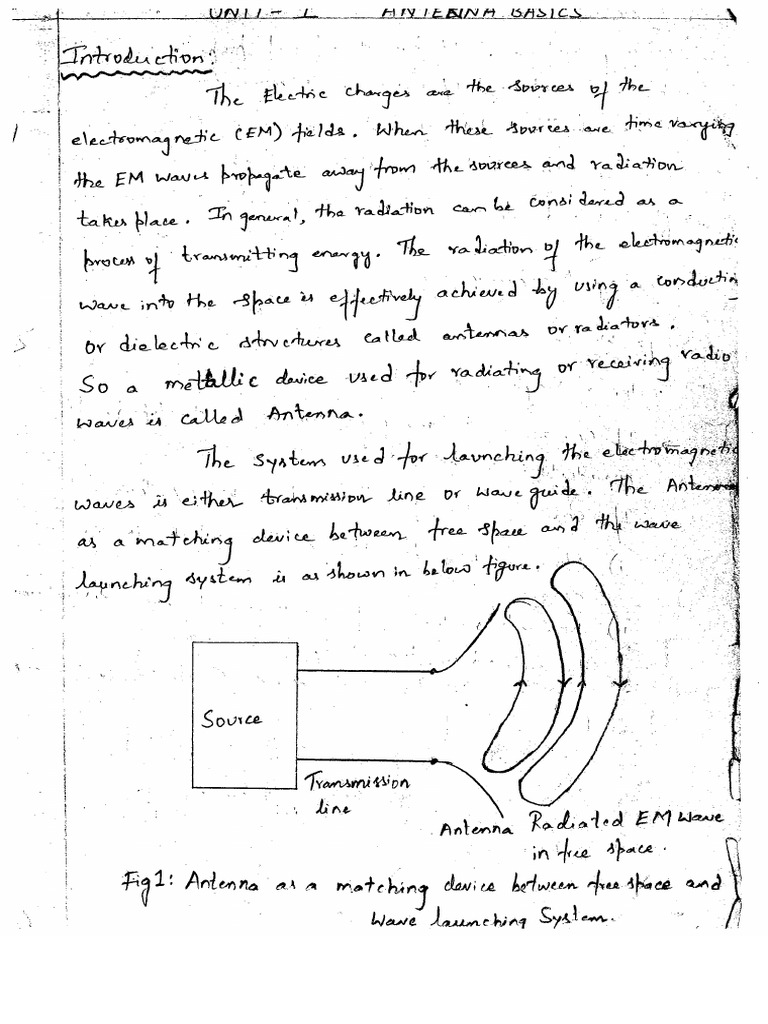 UNIT - I ANTENNA BASICS
Introduction:
The Electric charges are the sources of the
electromagnetic (EM) fields. When these sources are time varying
the EM waves propagate away from the sources and radiation
takes place. In general, the radiation can be considered as a
process of transmitting energy. The radiation of the electromagnetic
wave into the space is effectively achieved by using a conductin
or dielectric structures called antennas or radiators.
So a metallic device used for radiating or receiving radio
waves is called Antenna.
The System used for launching the electromagnetic
waves is either transmission line or wave guide. The Antenna
as a matching device between free space and the wave
launching system is as shown in below figure.
Source
Transmission
line
Antenna
Radiated EM wave
in free space.
Fig1: Antenna as a matching device between free space and
wave launching System.